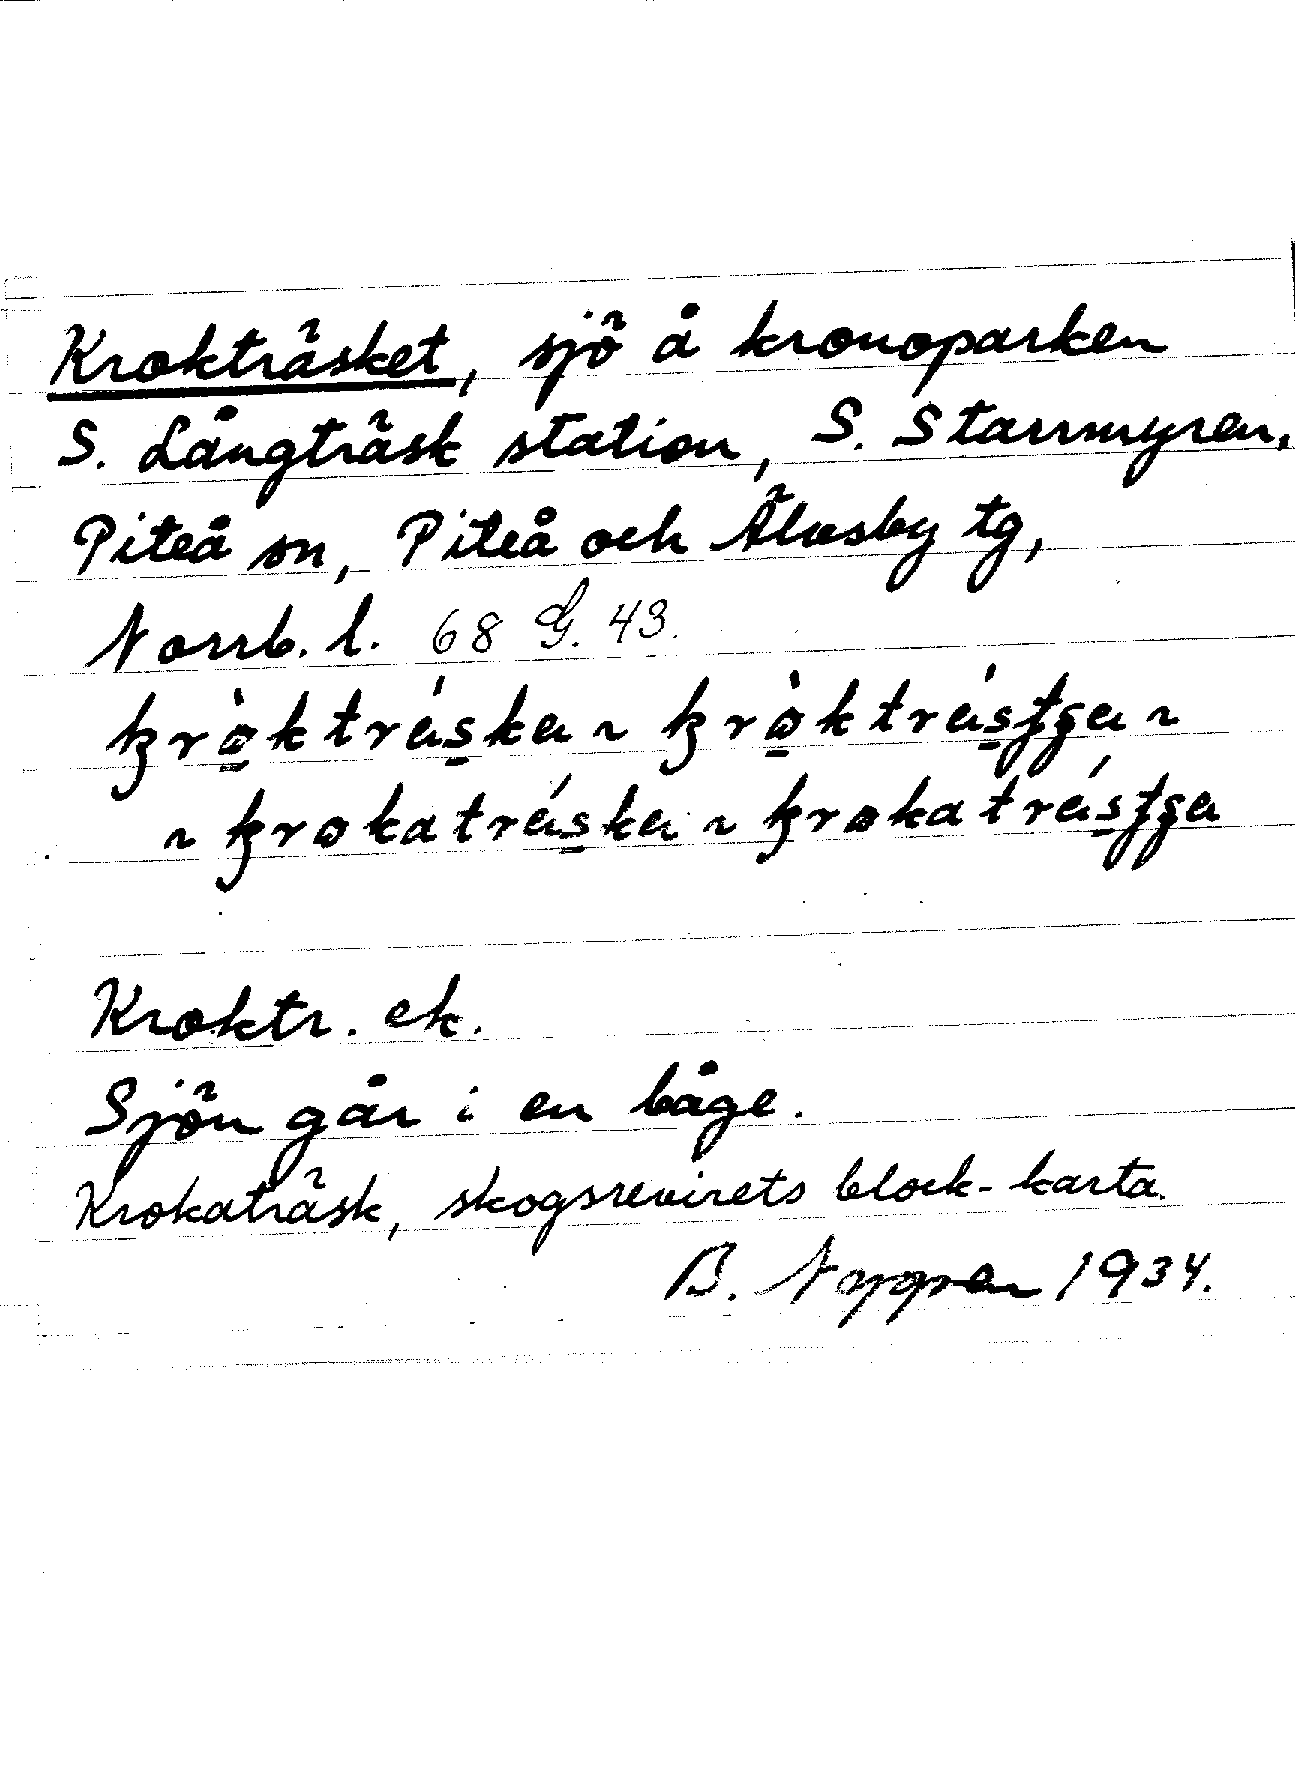 Krokträsket, sjö å kronoparken
S. Långträsk station, S. Starrmyren,
Piteå sn, Piteå och Älvsby tg,
Norrb. l. 68 G. 43.
kròktráska ~ kròktrástȿa ~
~ krokatráska ~ krokatrástȿa
Kroktr. ek.
Sjön går i en båge.
Krokaträsk, skogsrevirets block-karta.
B. 1934.